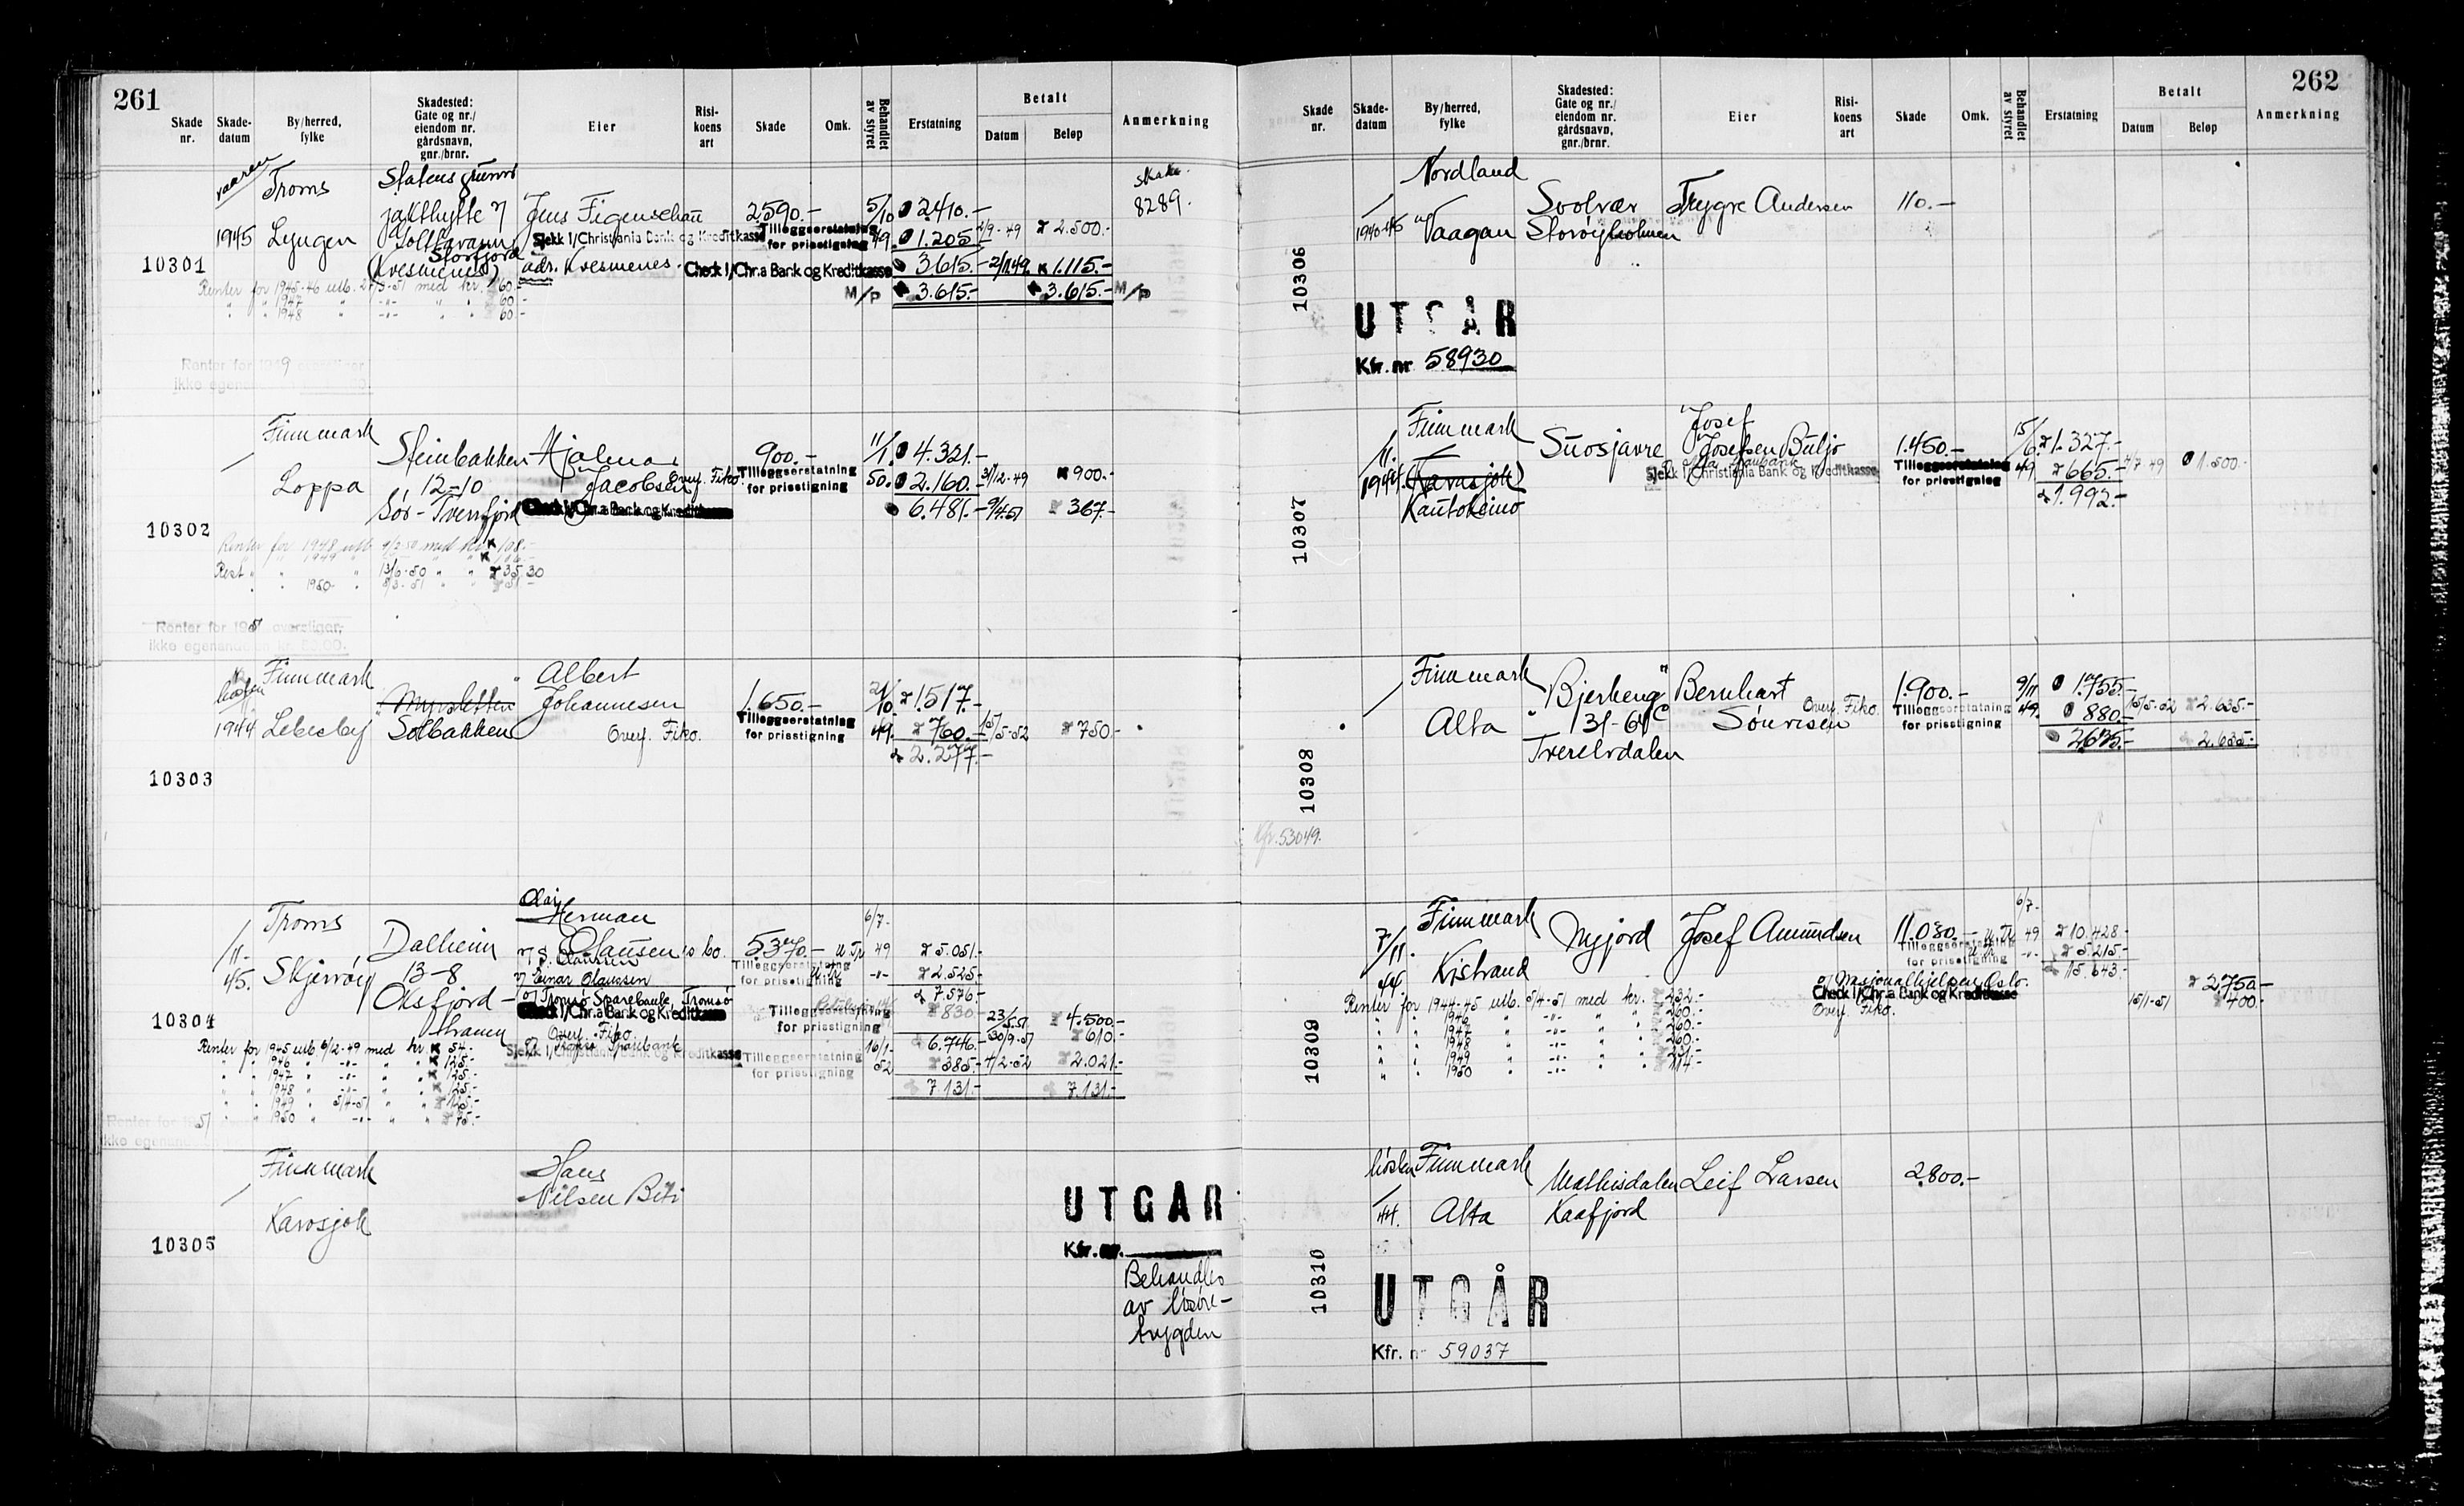 261
Skade nr.
Skade- datum
By/herred, fylke
Skadested: Gate og nr./ eiendom nr. gårdsnavn, gnr./brnr.
Eier
Risi- koens art
Skade
Omk.
Behandlet av styret
Erstatning
Betalt
Datum
Beløp
Anmerkning
10301
vaaren
1945
Troms
Lyngen
Statens grunn
jakthytte v/
Storfjord
(Kvesmenes)
Jens Figenschau
Sjekk 1/Christiania Bank og Kreditkasse
adr. Kvesmenes.
Check 1/Chr.a Bank og Kreditkasse
2590.-
Tilleggserstatning
for prisstigning
5/10
49.
2.410.-
1.205.-
3615.-
3.615.-
2/9-49
2.500.-
2/11.49.
1.115.-
3.615.-
M/P
M/P
8289.
Renter for 1945-46 utb. 27/3-51 med kr. 60.-
" " 1947 " -"- " " 60.-
" " 1948 " -"- " " 60.-
Renter for 1949 overstiger
ikke egenandelen
10302
Finnmark
Loppa
Steinbakken
12-10
Sør-Tverrfjord
Hjalmar
Jacobsen
Overf. Fiko.
Check 1/Chr.a Bank og Kreditkasse
900.-
Tilleggserstatning
for prisstigning
11/1.
50.
4.321.-
2.160.-
6.481.-
31/12-49
900.-
9/4.51
367.-
Renter for 1948 utb 9/2 50 med kr. 108.-
" " 1949
Rest " " 13/6-50 " " 35.30
" 1950 "
Renter for 195 overstiger
ikke egenandelen
10303
høsten
1944
Finnmark
Lebesby
Myrsletten
Solbakken
Albert
Johannesen
Overf. Fiko.
1.650.-
Tilleggserstatning
for prisstigning
21/10.
49.
1.517.-
760.-
2.277.-
15/5-52
750.-
10304
11-
45.
Troms
Skjervøy
Dalheim
13-8
Oksfjord-
hamn
Olaj
Herman
Olaussen s bo.
v/ Einar Olaussen
v/ Tromsø Sparebank, Tromsø
Check 1/Chr.a Bank og Kreditkasse
Overf. Fiko.
Sjekk 1/Christiania Bank og Kreditkasse
5.370.-
Tilleggserstatning
for prisstigning
Tilleggserstatning
for prisstigning
Tilleggserstatning
for prisstigning
6/7-
49
-"-
16/1-
52
5.051.-
2.525.-
7.576.-
830.-
6.746.-
385.-
7.131.-
23/5.51
4.500.-
30/9-51
610.-
4/2-52
2.021.-
7.131.-
Renter for 1945 utb 6/2-49 med kr 54.-
" " 1946 " -"- " " 125.-
" " 1947 " -"- " " 125.-
" " 1948 " -"- " " 125.-
" " 1949 " 5/4-51 " " 125.-
" " 1950 " -"- " " 75.-
Renter for 1951
ikke egenandelen
10305
Finnmark
Karasjok
Hans
Nilsen Biti
UTGÅR
Kfr. nr.
Behandles
av løsøre-
bygden
262
Skade nr.
Skade- datum
By/herred, fylke
Skadested: Gate og nr./ eiendom nr. gårdsnavn, gnr./brnr.
Eier
Risi- koens art
Skade
Omk.
Behandlet av styret
Erstatning
Betalt
Datum
Beløp
Anmerkning
10306
1940-45
Nordland
Vaagan
Svolvær
Storøyholmen
Trygve Andersen
110.-
UTGÅR
Kfr. nr 58930
10307
11.
1944.
Finnmark
(Karasjok)
Kautokeino
Suosjavre
Josef
Josefsen Buljo
Sjekk 1/Christiania Bank og Kreditkasse
1.450.-
Tilleggserstatning
for prisstigning
15/6.
49
1.327.-
665.-
1.992.-
4/7-49
1.500.-
10308
Finnmark
Alta
"Bjerkeng"
131-64
Tverelvdalen
Bernhart
Sørensen
Overf. Fiko.
1.900.-
Tilleggserstatning
for prisstigning
9/11
49.
1.755.-
880.-
2635.-
15/5-52
2.635.-
2.635.-
Kfr. 53049.
10309
7/11.
44.
Finnmark
Kistrand
Nyjord
Josef Amundsen
11.030.-
Tilleggserstatning
for prisstigning
6/7-
49
-"-
10.428.-
5.215.-
15.643.-
v/ Nasjonalhjelpen, Oslo.
Check 1/Chr.a Bank og Kreditkasse
Overf. Fiko.
2.750.-
15/1-51
400.-
Renter for 1944-45 utb. 5/4-51 med kr. 232.-
" " 1946 " -"- " " 260.-
" " 1947 " -"- " " 260.-
" " 1948 " -"- " " 260.-
" " 1949 " -"- " "
" " 1950 " -"- " " 214.-
10310
høsten
44.
Finnmark
Alta
Mathisdalen
Kaafjord
Leif Larsen
2.800.-
UTGÅR
Kfr. n 59037